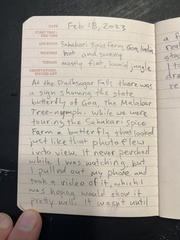 DATE Feb 18, 2023
Sahakari Spice Farm, Goa, India
hot and sunny
mostly flat, around jungle
At the Dudhsagar Falls there was
a sign showing the state
butterfly of Goa, the Malabar
Tree-nymph. While we were
touring the Sahakari Spice
Farm a butterfly that looked
just like that photo flew
into view. It never perched
while I was watching, but
I pulled out my phone and
took a video of it, which I
was hoping would show it
pretty well. It wasn't until